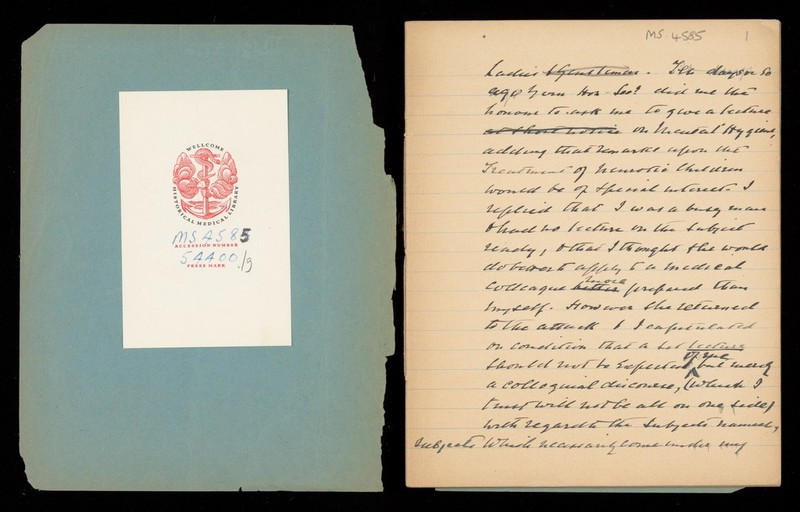 WELLCOME
HISTORICAL MEDICAL LIBRARY
MS.4585
ACCESSION NUMBER
54400./9
PRESS MARK
MS 4585 1
Ladies & Gentlemen. Ten days or so
ago your Hon Secy did me the
honour to ask me to give a lecture
at short notice on Mental Hygiene,
adding that remarks upon the
Treatment of Neurotic Children
would be of special interest. I
replied that I was a busy man
& had no lecture on the subject
ready, & that I thought she would
do better to apply to a medical
colleague better more prepared than
myself. However she returned
to the attack & I capitulated
on condition that a set lecture
should not be expected of me but merely
a colloquial discourse, (which I
trust will not be all on one side)
with regard to the subjects named,
subjects which necessarily come under my